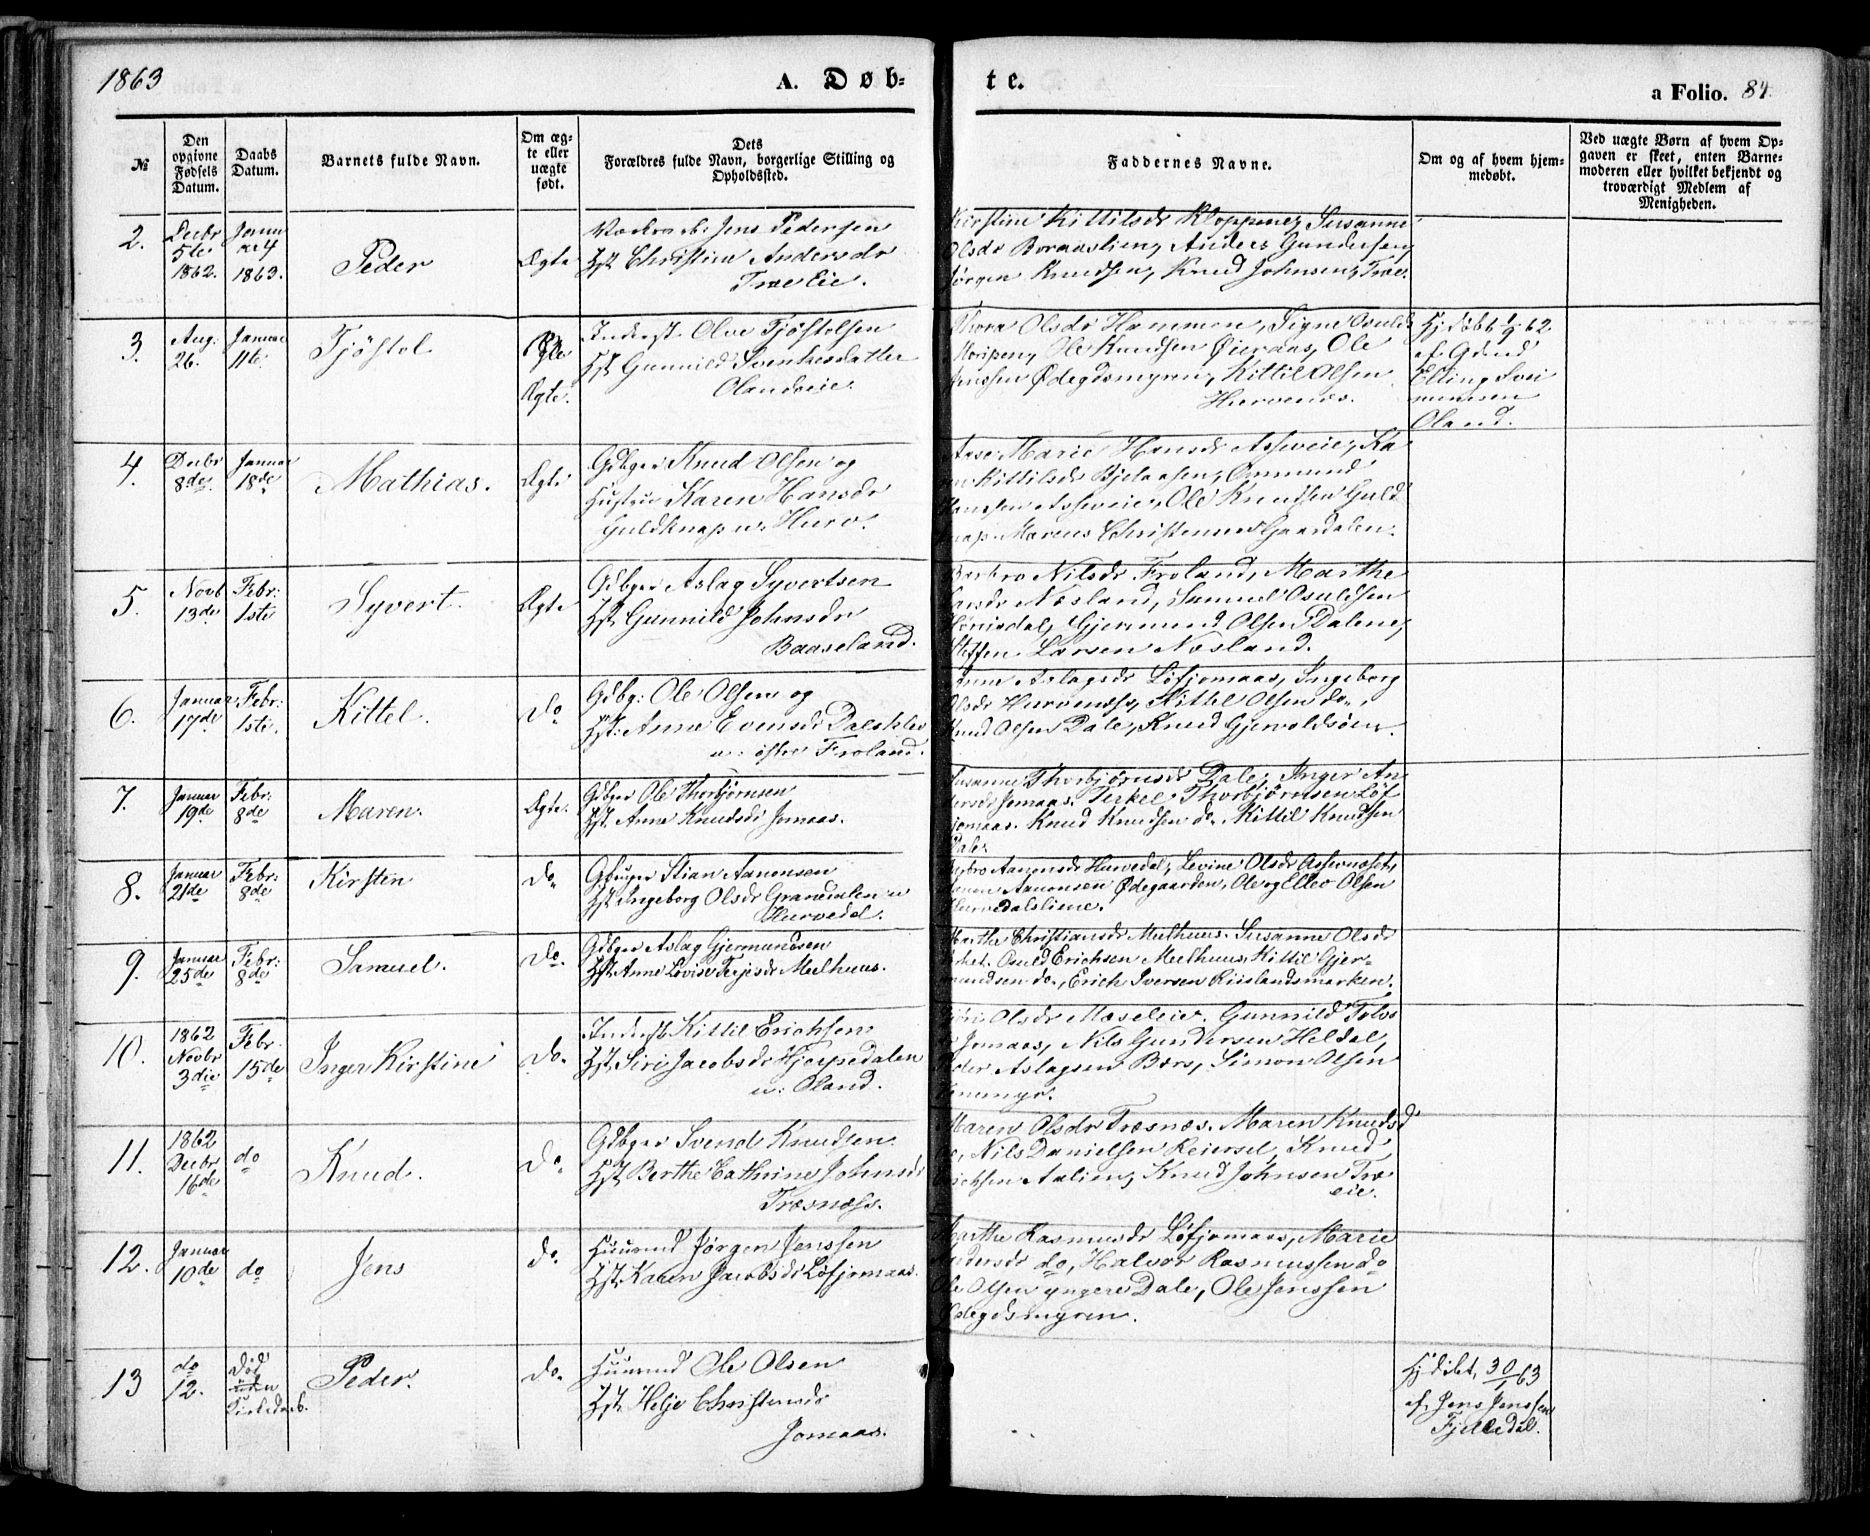 1863
A. Døb-
te.
a Folio. 84.
№
Den opgivne Fødsels Datum.
Daabs Datum.
Barnets fulde Navn.
Om ægte eller uægte født.
Dets Forældres fulde Navn, borgerlige Stilling og Opholdssted.
Faddernes Navne.
Om og af hvem hjemmedøbt.
Ved uægte Børn af hvem Opgaven er skeet, enten Barnemoderen eller hvilket bekjendt og troværdigt Medlem af Menigheden.
2.
Decbr
5te
1862.
Janu
ar 4
1863.
Peder
Ægte
Jens Pedersen
Hst Christine Andersdr
Træ Eie.
Kirstine Kittilsdr Kloppene, Susanne
Olsdr Boraaslien, Anders Gundersen,
Jørgen Knudsen, Knud Johnsen, Træ.
3.
Aug:
26.
Januar
11te
Tjøstol
Ægte.
Inderst Olve Tjøstolsen
Hst Gunnild Svenkesdatter
Olandseie.
Thora Olsdr Hammen, Signe Osulds
Moripen, Ole Knudsen Øieraas, Ole
Jenssen Ødegdsmyren, Kittil Olsen
Hurvenes.
Hj. døbt 1/9 62.
af Gdmd
Elling Svei
nunsen
Oland.
4.
Decbr
8de
Januar
18de
Mathias.
Ægte
Gdbger Knud Olsen og
Hustrue Karen Hansdr
Guldknap u. Hurv.
Aase Marie Hansdr Assveie, Ka
Kittilsdr Bjelaasen, Ommund
Hanssen Assveie, Ole Knudsen Guld
knap. Marcus Christensen Gaardalen.
5.
Novb
13de
Febr:
1ste
Syvert.
Ægte
Gdbger Aslag Syvertsen
Hst Gunnild Johnsdr
Baaseland.
Barbro Nilsdr Froland, Marthe
Larsdr Næsland, Samuel Osuldsen
Hønisdal, Gjermund Olsen Dalene,
Steffen Larsen Næsland.
6.
Januar
17de
Febr:
1ste.
Kittel.
do
Gdbg: Ole Olsen og
Hst: Anne Evensdr Dalsklev
u: øster Froland.
Anne Aslagsdr Løfjomaas, Ingeborg
Olsdr Hurvenæss, Kittel Olsen do.,
Knud Olsen Dale, Knud Gjervoldsøen.
7.
Januar
19de
Febr:
8de
Maren.
Ægte.
Gdbger Ole Thorbjørnsen
Hst. Anne Knudsdr Jomaas.
Susanne Thorbjørnsdr Dale, Inger An
dersdr Jomaas. Terkel Thorbjørnsen Løf
jomaas. Knud Knudsen do. Kittil Knudsen
Dale.
8.
Januar
21de
Febr:
8de
Kirsten
do.
Gbruger Stian Aanonsen
Hst Ingeborg Olsdr Granedalen u
Hurvedal.
Barbro Aanonsdr Hurvedal, Levine Olsdr Assevnæset,
Aanon Aanonsen Ødegaarden, Ole og Ellev Olsen
Hurvedalsliene.
9.
Januar
25de
Febr:
8de
Samuel.
do.
Gdbger Aslag Gjermundsen
Hst Anne Lovise Terjesdr Mulhuus.
Marthe Christiansdr Mulhuus. Susanne Olsdr
Osuld Erichsen Mulhuus, Kittil Gjer-
mundsen do., Erich Iversen Riislandsmarken.
10.
1862
Novbr
3die
Febr.
15de
Inger Kirstine
do.
Inderst Kittil Erichsen
Hst Siri Jacobsdr Hjerpedalen
u: Oland.
Olsdr Maseleie. Gunnild Tolvs
Jomaas, Nils Gundersen Heldal,
Peder Aslagsen Børs, Simon Olsen
11.
1862
Decbr
16de
do
Knud.
do.
Gdbger Svend Knudsen.
Hst Berthe Cathrine Johnsd
Træsnæss.
Maren Olsdr Træsnæs. Maren Knudsd
do, Nils Danielsen Reiersel, Knud
Erichsen Aalien, Knud Johnsen Træ
eie.
12.
Januar
10de
do
Jens
do.
Huusmd Jørgen Jenssen
Hst. Karen Jacobsdr Løfjomaas.
Marthe Rasmusdr Løfjomaas, Marie
do, Halvor Rasmussen do
Ole Olsen yngere Dale, Ole Jenssen
Ødegdsmyren.
13
do
12.
Død
uden
Kirkedaab.
Peder.
do.
Huusmd Ole Olsen
Hst Helje Christensdr
Jomaas.
Hj døbt, 30/1 63
af Jens Jenssen
Fjelledal.